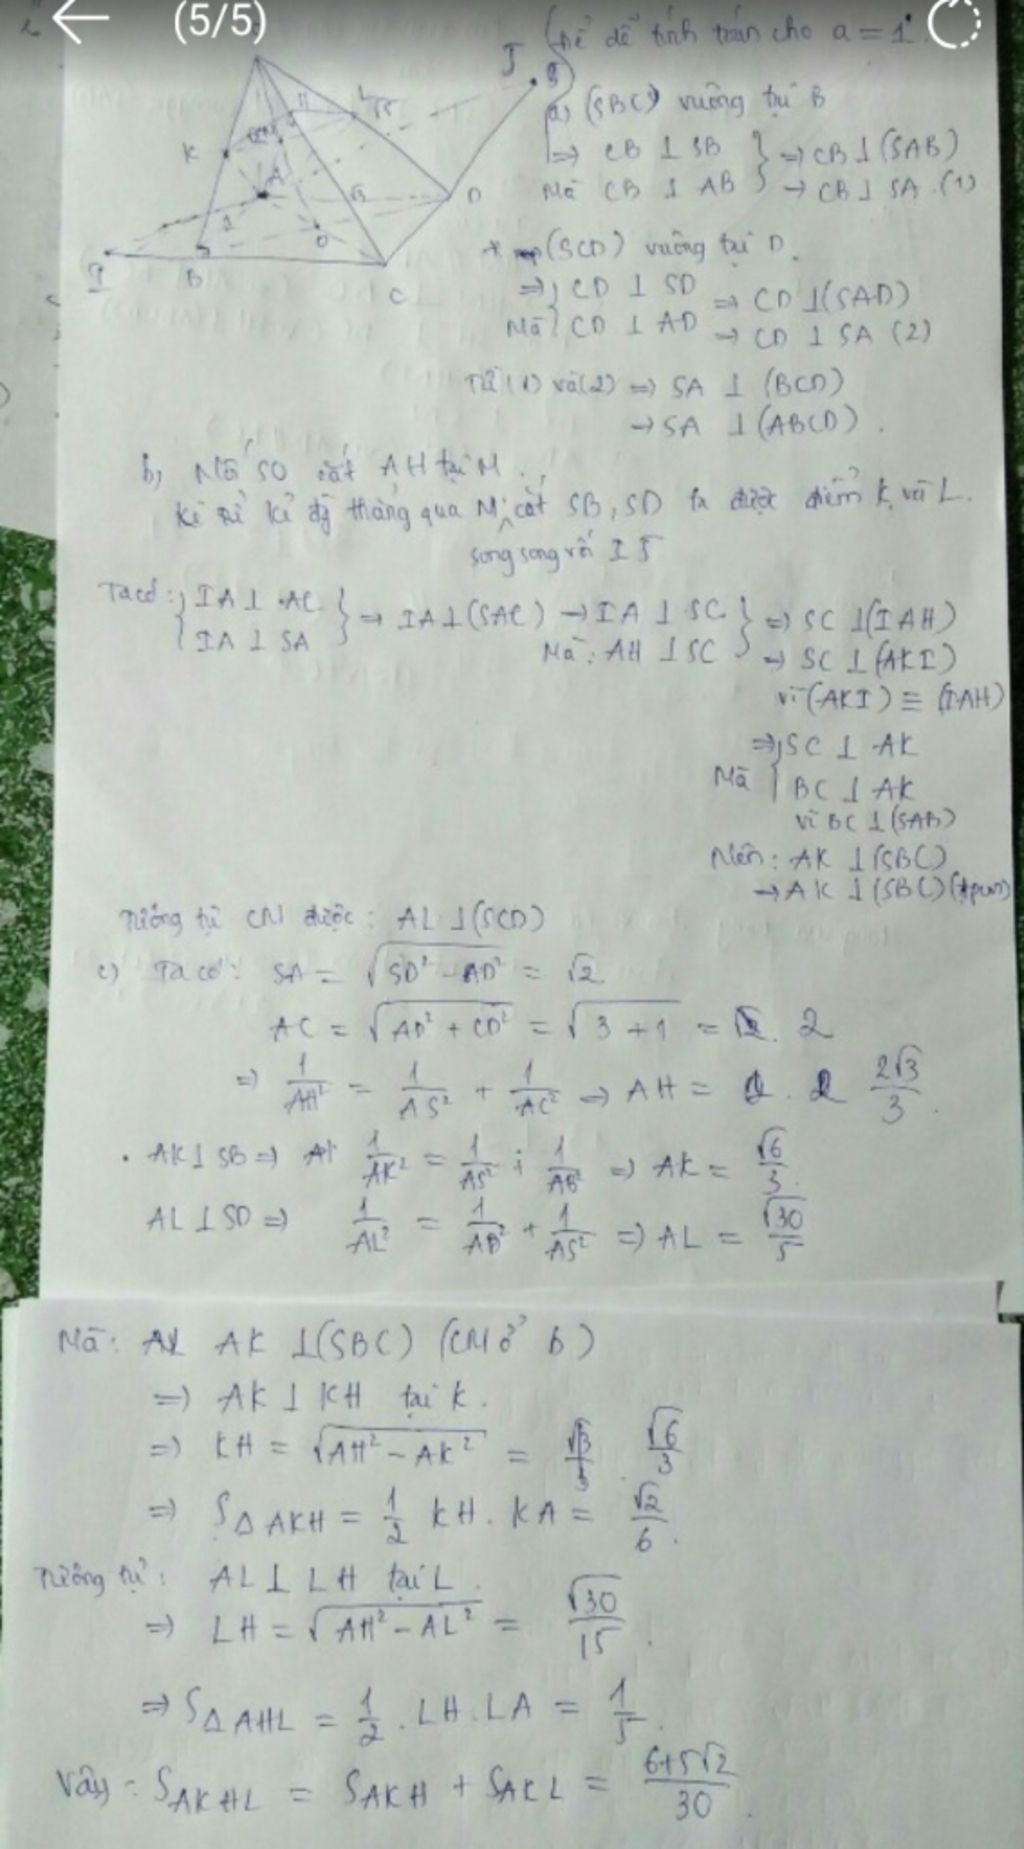 (5/5)
(Để dễ tính toán cho a = 1)
a) (SBC) vuông tại B
=> CB ⊥ SB } => CB ⊥ (SAB)
Mà CB ⊥ AB } → CB ⊥ SA (1)
* (SCD) vuông tại D.
=> { CD ⊥ SD => CD ⊥ (SAD)
Mà { CD ⊥ AD → CD ⊥ SA (2)
Từ (1) và (2) => SA ⊥ (BCD)
→ SA ⊥ (ABCD).
b) Nối SO cắt AH tại M.
kẻ đg thẳng qua M cắt SB, SD ta được điểm K và L.
song song với IJ
Ta có: { IA ⊥ AC } => IA ⊥ (SAC) → IA ⊥ SC } => SC ⊥ (IAH)
{ IA ⊥ SA } Mà: AH ⊥ SC } => SC ⊥ (AKI)
vì (AKI) ≡ (IAH)
=> { SC ⊥ AK
Mà { BC ⊥ AK
vì BC ⊥ (SAB)
Nên: AK ⊥ (SBC)
→ AK ⊥ (SBC) (đpcm)
Tương tự CM được: AL ⊥ (SCD)
c) Ta có: SA = √(SD² - AD²) = √2.
AC = √(AD² + CD²) = √(3 + 1) = 2
=> 1/AH² = 1/AS² + 1/AC² => AH = 2√3/3.
. AK ⊥ SB => 1/AK² = 1/AS² + 1/AB² => AK = √6/3.
AL ⊥ SD => 1/AL² = 1/AD² + 1/AS² => AL = √30/5
Mà: AK ⊥ (SBC) (CM ở b)
=> AK ⊥ KH tại K.
=> KH = √(AH² - AK²) = √6/3
=> S△AKH = 1/2 KH . KA = √2/6.
Tương tự: AL ⊥ LH tại L.
=> LH = √(AH² - AL²) = √30/15.
=> S△AHL = 1/2 . LH . LA = 1/5.
Vậy: SAKHL = SAKH + SAKL = (6+5√2)/30.